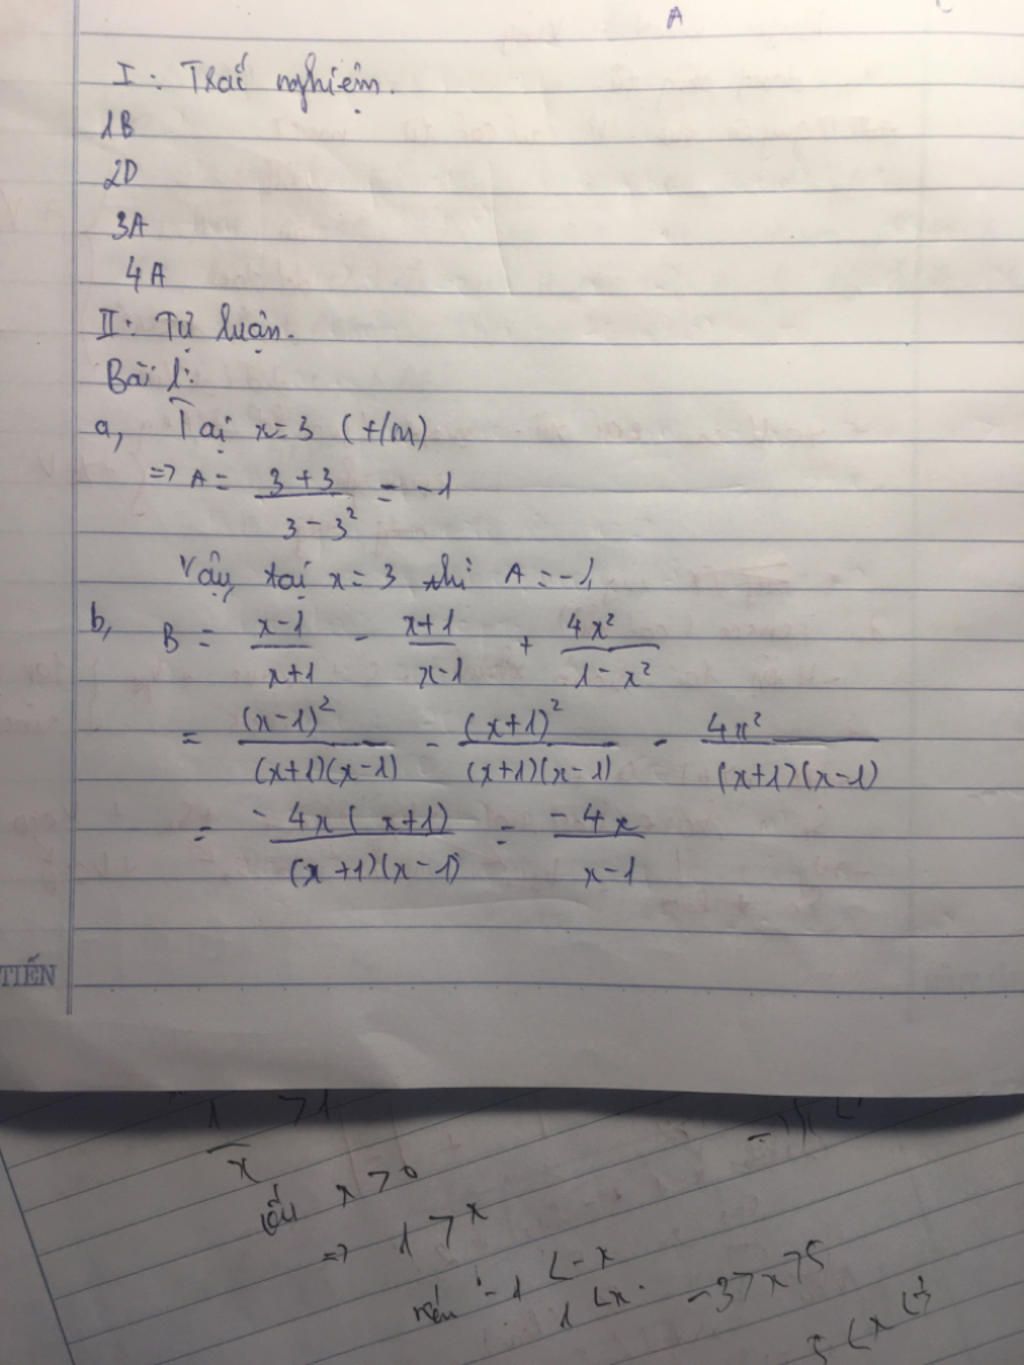 A
I: Trắc nghiệm.
1B
2D
3A
4A
II: Tự luận.
Bài 1:
a, Tại x=3 (t/m)
=> A = (3+3)/(3-3²) = -1
Vậy tại x=3 thì A=-1
b, B = (x-1)/(x+1) - (x+1)/(x-1) + 4x²/(1-x²)
= (x-1)²/((x+1)(x-1)) - (x+1)²/((x+1)(x-1)) - 4x²/((x+1)(x-1))
= -4x(x+1)/((x+1)(x-1)) = -4x/(x-1)
TIẾN
1/x > 1
x > 0
=> 1 > x
nếu -1 < -x
1 < x.
-3 > x > 5